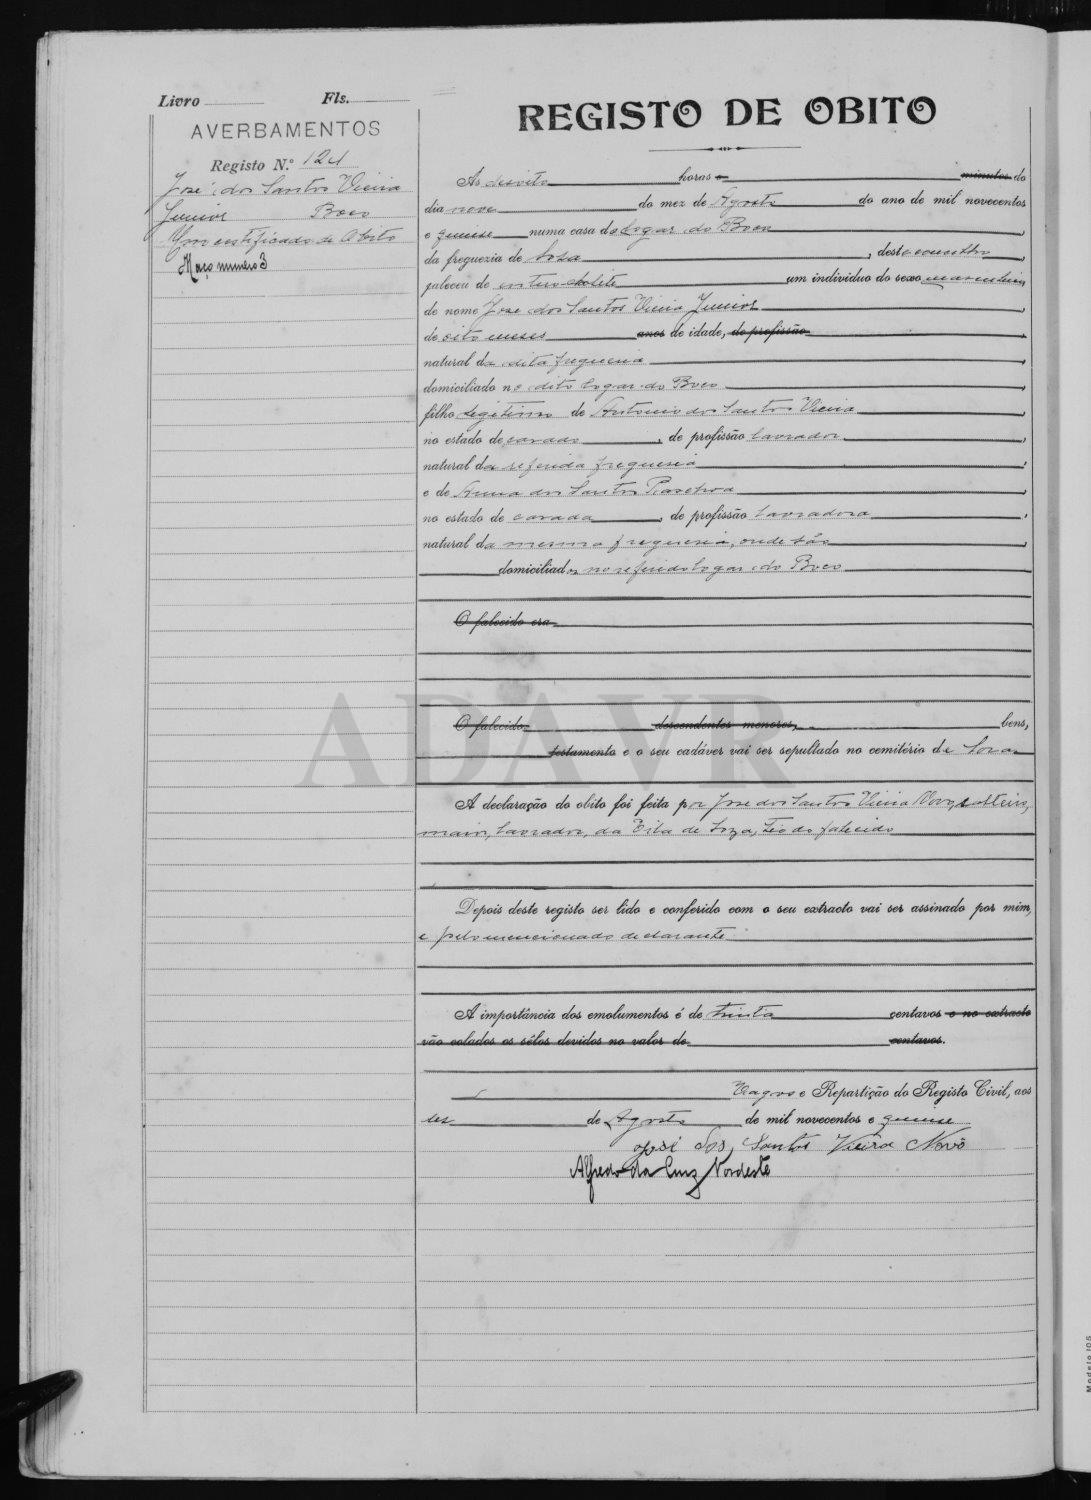 Livro Fls.
AVERBAMENTOS
Registo N.º 124
José dos Santos Vieira
Junior Boco
Um certificado de Obito
Maço numero 3
REGISTO DE OBITO
As desoito horas e minutos do
dia nove do mez de Agosto do ano de mil novecentos
e quinse numa casa do logar do Boco
da freguezia de Soza, deste concelho,
faleceu de entero-colite um individuo do sexo masculino
de nome José dos Santos Vieira Junior,
de oito meses anos de idade, de profissão
natural da dita freguesia,
domiciliado no dito logar do Boco,
filho legitimo de Antonio dos Santos Vieira,
no estado de casado, de profissão lavrador,
natural da referida freguesia,
e de Anna dos Santos,
no estado de casada, de profissão lavradora,
natural da mesma freguesia, onde são,
domiciliados no referido logar do Boco
O falecido era
O falecido descendentes menores, bens,
testamento e o seu cadáver vai ser sepultado no cemitério de Soza
A declaração do obito foi feita por José dos Santos Vieira Novo, solteiro,
maior, lavrador, da Vila de Soza, tio do falecido
Depois deste registo ser lido e conferido com o seu extracto vai ser assinado por mim,
e pelo mencionado declarante
A importância dos emolumentos é de trinta centavos e no extracto
vão colados os sêlos devidos no valor de centavos.
Vagos e Repartição do Registo Civil, aos
dez de Agosto de mil novecentos e quinse
José dos Santos Vieira Novo
Alfredo da Cruz Nordeste
ADAVR